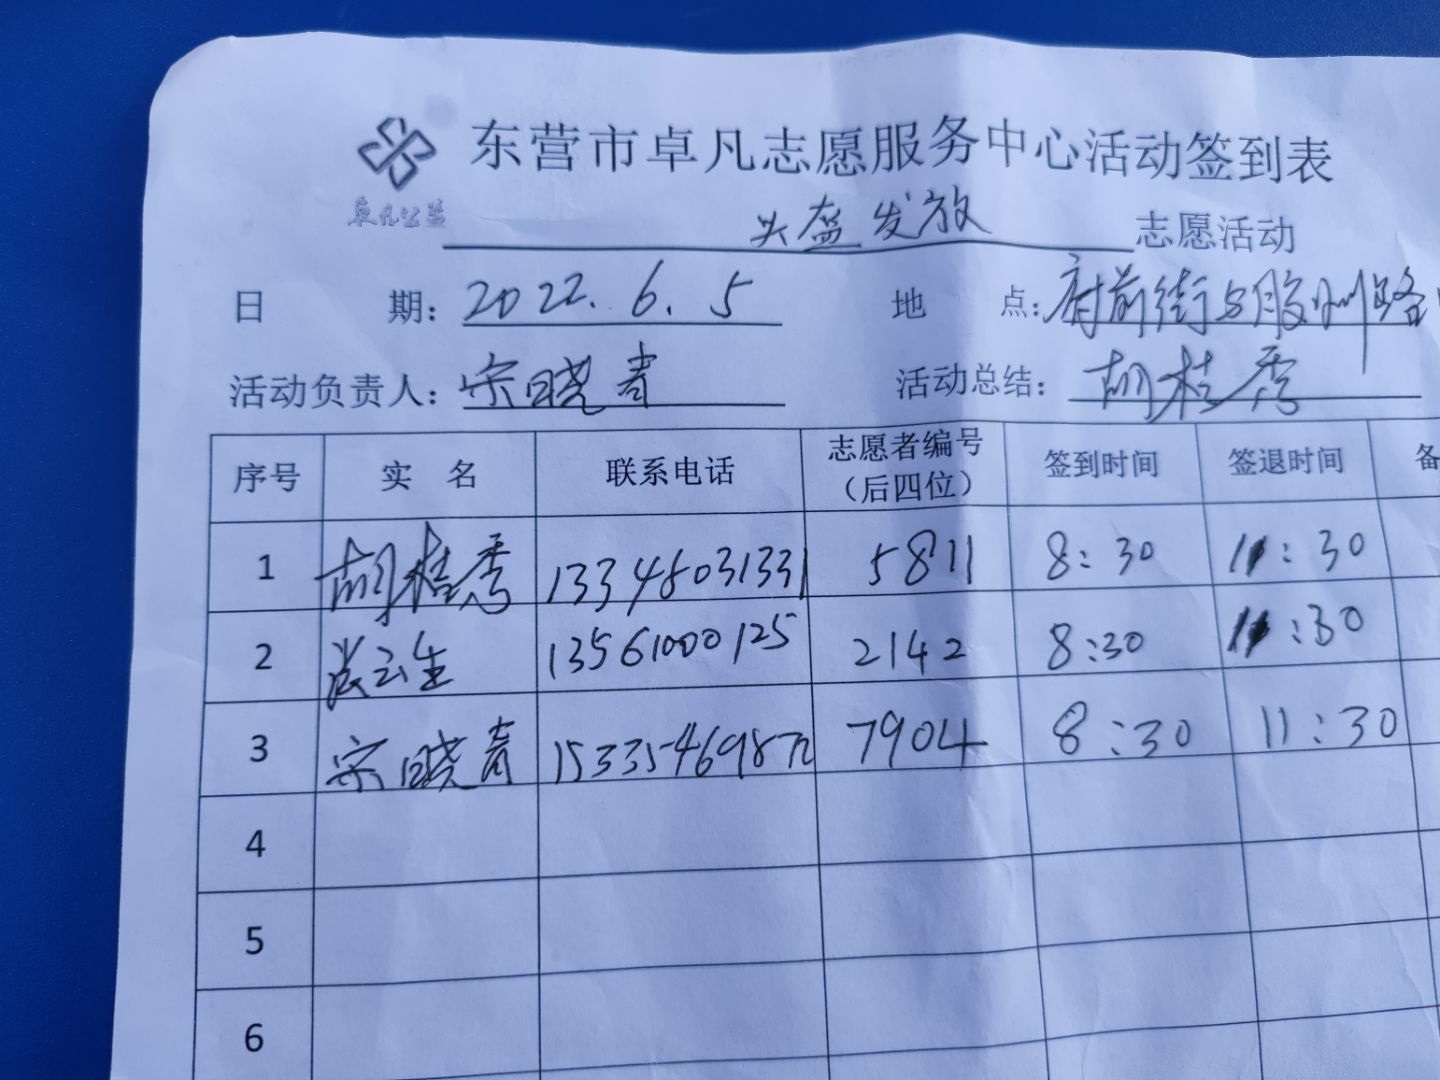 东营市卓凡志愿服务中心活动签到表
卓凡公益
头盔发放 志愿活动
日 期：2022.6.5 地 点：府前街与胶州路
活动负责人：宋晓青 活动总结：胡桂秀
序号 实 名 联系电话 志愿者编号（后四位） 签到时间 签退时间 备
1 胡桂秀 13345031331 5811 8:30 11:30
2 张云生 13561000125 2142 8:30 11:30
3 宋晓青 7904 8:30 11:30
4
5
6